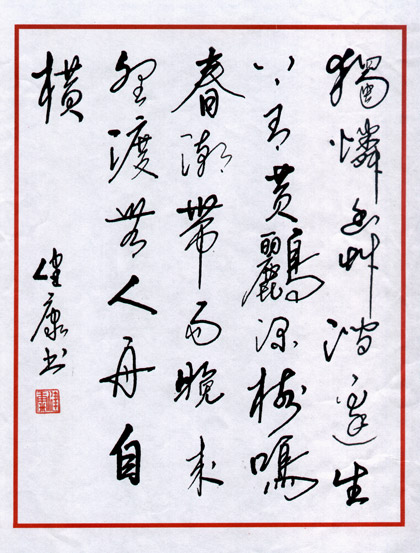 獨憐幽艸澗邊生
上有黄鸝深樹鳴
春潮帶雨晚来
野渡無人舟自
横
健康书